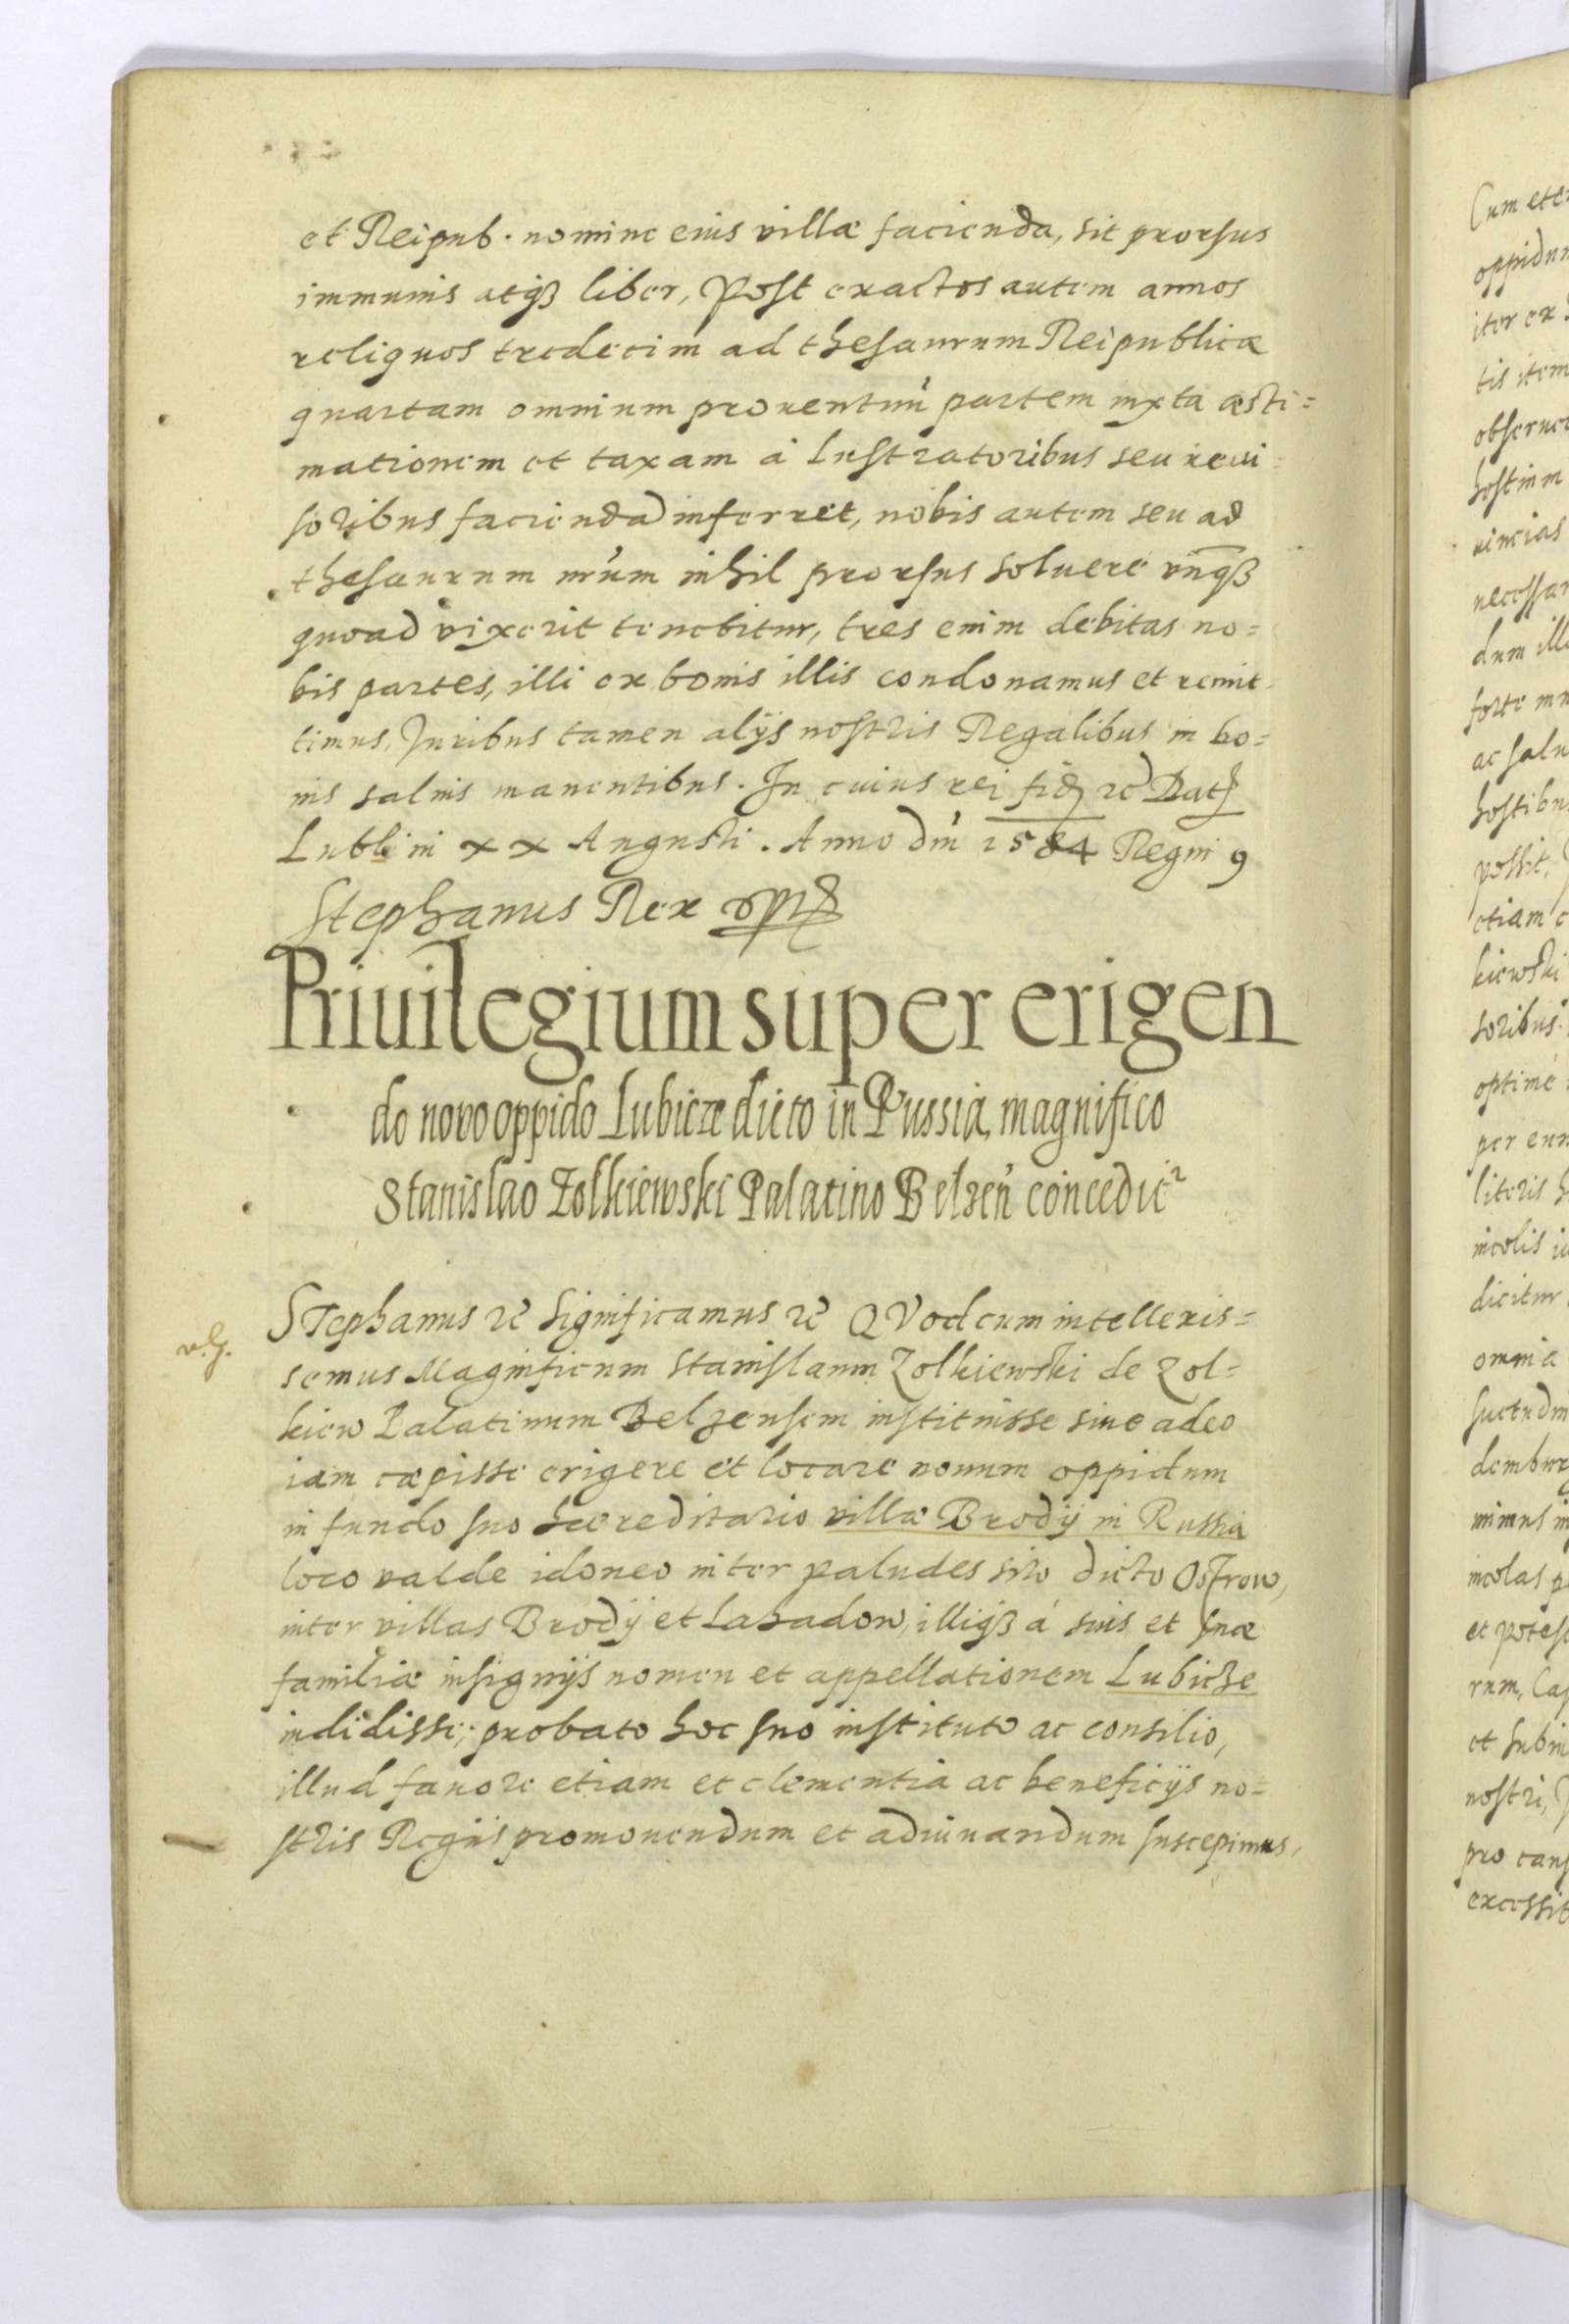 et Reipub. nomine eius villæ facienda, sit prorsus
immunis atqꝫ liber, Post exactos autem annos
reliquos tredecim ad thesaurum Reipublicæ
quartam omnium prouentuū partem iuxta æsti=
mationem et taxam à Lustratoribus seu reui=
soribus facienda inferret, nobis autem seu ad
thesaurum nr̃um nihil prorsus soluere vnqꝫ
quoad vixerit tenebitur, tres enim debitas no=
bis partes, illi ex bonis illis condonamus et remit=
timus, Iuribus tamen alijs nostris Regalibus in bo=
nis saluis manentibus. In cuius rei fid etc Dat
Lublini xx Augusti. Anno dni 1584 Regni 9
Stephanus Rex
Priuilegium super erigen
do novo oppido Lubicze dicto in Russia, magnifico
Stanislao Zolkiewski Palatino Belzen̄ concedit²
v. g.
Stephanus etc Significamus etc QVod cum intellexis=
semus Magnificum Stanislaum Zolkiewski de Zol=
kiew Palatinum Belzensem instituisse siue adeo
iam cæpisse erigere et locare nouum oppidum
in fundo suo hæreditario villæ Brodÿ in Russia
loco valde idoneo inter paludes sito dicto Ostrow,
inter villas Brodÿ et Lahadow, illiqꝫ à suis et suæ
familiæ insignijs nomen et appellationem Lubicze
indidisse; probato hoc suo instituto ac consilio,
illud fauore etiam et clementia ac beneficijs no=
stris Regijs promouendum et adiuuandum suscepimus,
Cum
oppidum
iter ex
tis item
hostium
vincias
dum
possit,
etiam
kiewski
soribus
optimè
literis
incolis
dicitur
omnia
incolas
et
rum,
nostri,
pro
excessit